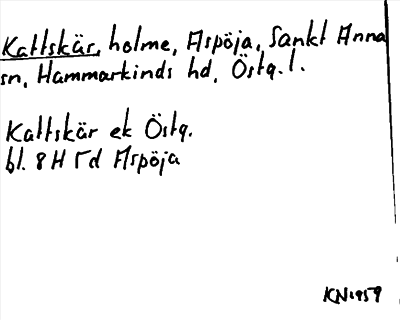 Kattskär, holme, Aspöja, Sankt Anna
sn, Hammarkinds hd, Östg. l.
Kattskär ek Östg.
bl. 8H 5d Aspöja
KN 1959